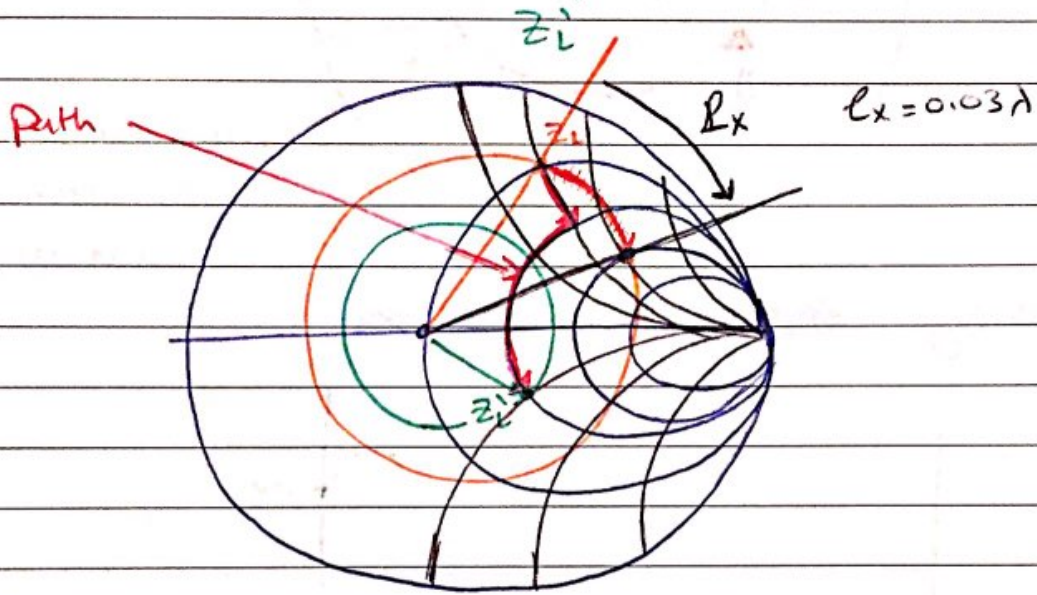 Z'L
Path
ZL
ℓx
ℓx = 0.03λ
Z'L